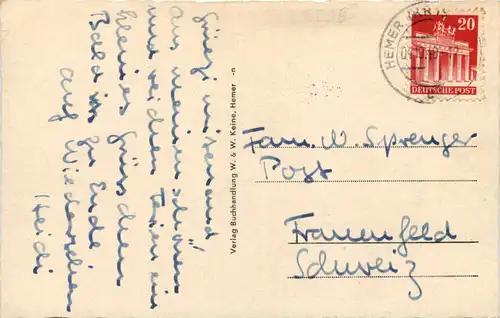 Grüezi mitenand!
aus meinen schönen
und reichen Ferien ein
kleines Grüsschen
Bald ists zu Ende
auf Wiedersehen
Heidi
Verlag Buchhandlung W. & W. Keine, Hemer -n
HEMER
20
DEUTSCHE POST
Fam. W. Sprenger
Post
Frauenfeld
Schweiz